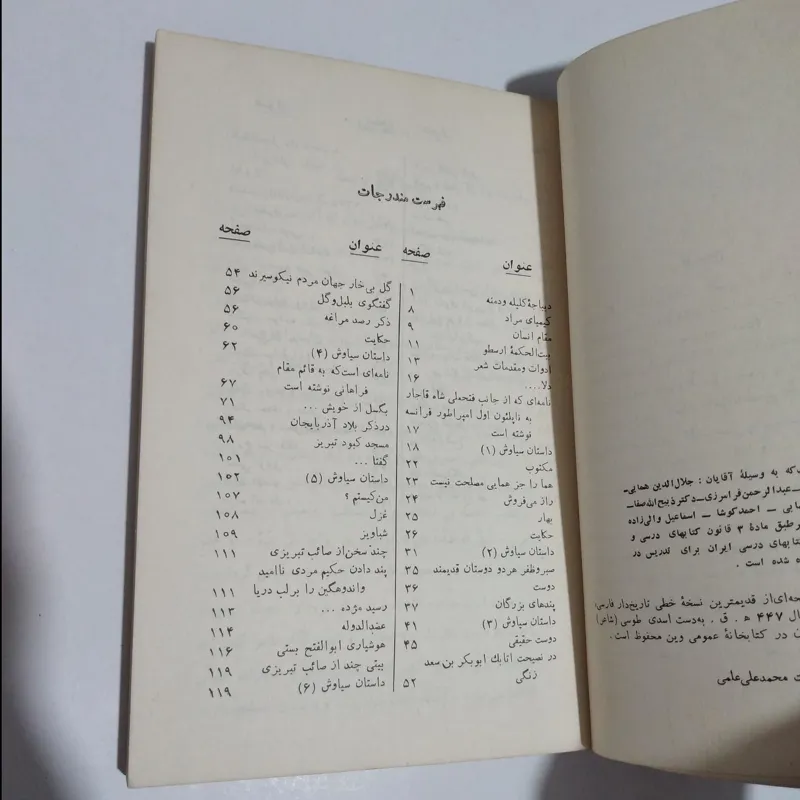 فهرست مندرجات
عنوان صفحه
دیباچهٔ کلیله ودمنه ۱
کیمیای مراد ۸
مقام انسان ۹
بیت‌الحکمهٔ ارسطو ۱۱
ادوات ومقدمات شعر ۱۳
دلا.... ۱۶
نامه‌ای که از جانب فتحعلی شاه قاجار
به ناپلئون اول امپراطور فرانسه
نوشته است ۱۷
داستان سیاوش (۱) ۱۸
مکتوب ۲۲
هما را جز همایی مصلحت نیست ۲۳
راز می‌فروش ۲۴
بهار ۲۵
حکایت ۲۶
داستان سیاوش (۲) ۳۱
صبروظفر هردو دوستان قدیمند ۳۵
دوست ۳۶
پندهای بزرگان ۳۷
داستان سیاوش (۳) ۴۱
دوست حقیقی ۴۵
در نصیحت اتابك ابوبکر بن سعد
زنگی ۵۲
عنوان صفحه
گل بی‌خار جهان مردم نیکوسیرند ۵۴
گفتگوی بلبل‌وگل ۵۶
ذکر رصد مراغه ۵۶
حکایت ۶۰
داستان سیاوش (۴) ۶۲
نامه‌ای است‌که به قائم مقام
فراهانی نوشته است ۶۷
بگسل از خویش ... ۷۱
درذکر بلاد آذربایجان ۹۴
مسجد کبود تبریز ۹۸
گفتا ... ۱۰۱
داستان سیاوش (۵) ۱۰۲
من‌کیستم ؟ ۱۰۷
غزل ۱۰۸
شباویز ۱۰۹
چند سخن‌از صائب تبریزی ۱۱۱
پند دادن حکیم مردی ناامید
واندوهگین را برلب دریا ۱۱۱
رسید مژده ... ۱۱۳
عضدالدوله ۱۱۴
هوشیاری ابوالفتح بستی ۱۱۶
بیتی چند از صائب تبریزی ۱۱۹
داستان سیاوش (۶) ۱۱۹
که به وسیلهٔ آقایان : جلال‌الدین همایی‌ـ
عبدالرحمن‌فرامرزی‌ـ‌دکترذبیح‌الله‌صفا‌ـ
ـ احمدکوشا ـ اسماعیل والی‌زاده
رطبق مادهٔ ۳ قانون کتابهای درسی و
تابهای درسی ایران برای تدریس در
ه شده است .
حه‌ای‌از قدیمترین نسخهٔ خطی تاریخ‌دار فارسی،
ال ۴۴۷ ه . ق . به‌دست اسدی طوسی (شاعر)
ن در کتابخانهٔ عمومی وین محفوظ است .
ت محمدعلی‌عامی